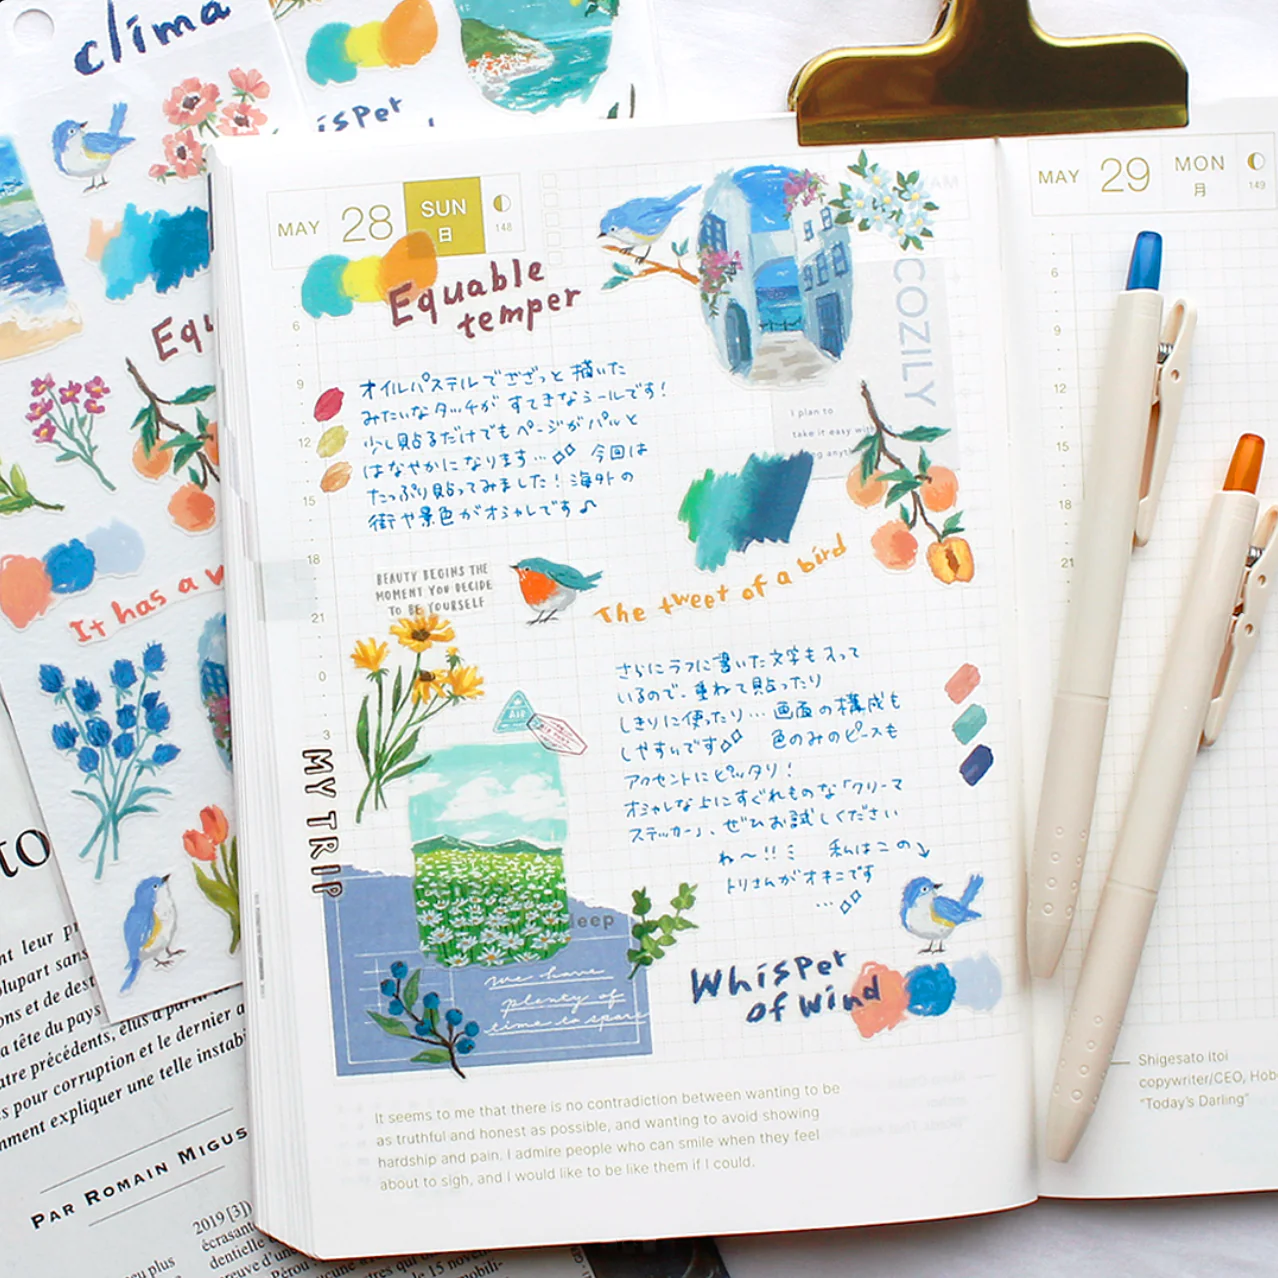 clíma
isper
Equ
It has a w
MAY 28 SUN
日
148
Equable
temper
6
9
12
15
18
21
0
3
オイルパステルでござっと描いた
みたいなタッチがすてきなシールです!
少し貼るだけでもページがパッと
はなやかになります… 今回は
たっぷり貼ってみました!海外の
街や景色がオシャレです♪
COZILY
I plan to
take it easy with
BEAUTY BEGINS THE
MOMENT YOU DECIDE
TO BE YOURSELF
The tweet of a bird
AIR
さらにラフに書いた文字も入って
いるので、重ねて貼ったり
しきりに使ったり… 画面の構成も
しやすいです 色のみのピースも
アクセントにピッタリ!
オシャレな上にすぐれものな「クリーマ
ステッカー」、ぜひお試しください
ね〜!! 私はこの
トリさんがオキニです
…
MY TRIP
deep
we have
plenty of
time to spare
Whisper
of wind
It seems to me that there is no contradiction between wanting to be
as truthful and honest as possible, and wanting to avoid showing
hardship and pain. I admire people who can smile when they feel
about to sigh, and I would like to be like them if I could.
MAY 29 MON
月
149
6
9
12
15
18
21
Shigesato Itoi
copywriter/CEO, Hobo
"Today's Darling"
to
nt leur pr
plupart sans
ons et de dest
a tête du pays
atre précédents, élus à partir
s pour corruption et le dernier a
mment expliquer une telle instabi
PAR ROMAIN MIGUS
2019 [3])
écrasant
dentielle